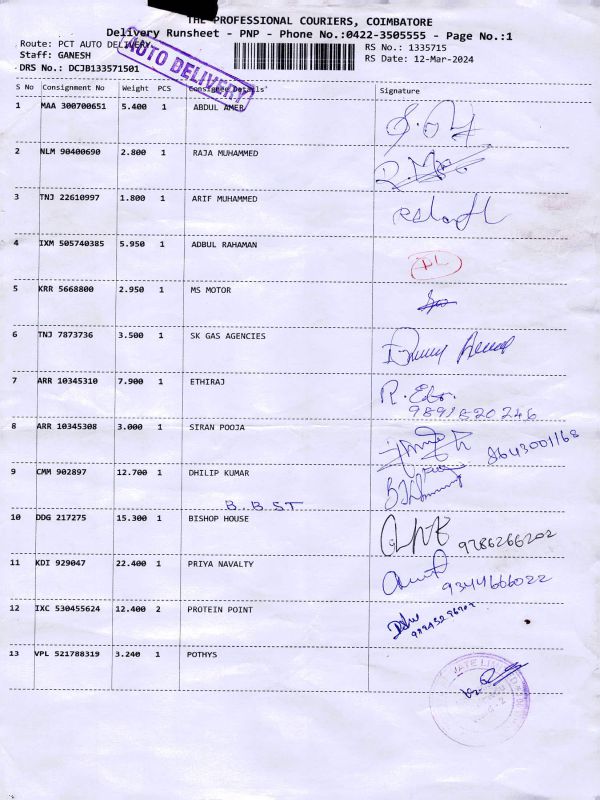 THE PROFESSIONAL COURIERS, COIMBATORE
Delivery Runsheet - PNP - Phone No.:0422-3505555 - Page No.:1
Route: PCT AUTO DELIVERY
RS No.: 1335715
Staff: GANESH
RS Date: 12-Mar-2024
DRS No.: DCJB133571501
AUTO DELIVERY
S No Consignment No Weight PCS Consignee Details' Signature
1 MAA 300700651 5.400 1 ABDUL AMER
2 NLM 90400690 2.800 1 RAJA MUHAMMED
3 TNJ 22610997 1.800 1 ARIF MUHAMMED
4 IXM 505740385 5.950 1 ADBUL RAHAMAN
5 KRR 5668800 2.950 1 MS MOTOR
6 TNJ 7873736 3.500 1 SK GAS AGENCIES
7 ARR 10345310 7.900 1 ETHIRAJ
9891520246
8 ARR 10345308 3.000 1 SIRAN POOJA 8643001168
9 CMM 902897 12.700 1 DHILIP KUMAR
B. B. S.T
10 DDG 217275 15.300 1 BISHOP HOUSE
9786266202
11 KDI 929047 22.400 1 PRIYA NAVALTY
9344666022
12 IXC 530455624 12.400 2 PROTEIN POINT
13 VPL 521788319 3.240 1 POTHYS